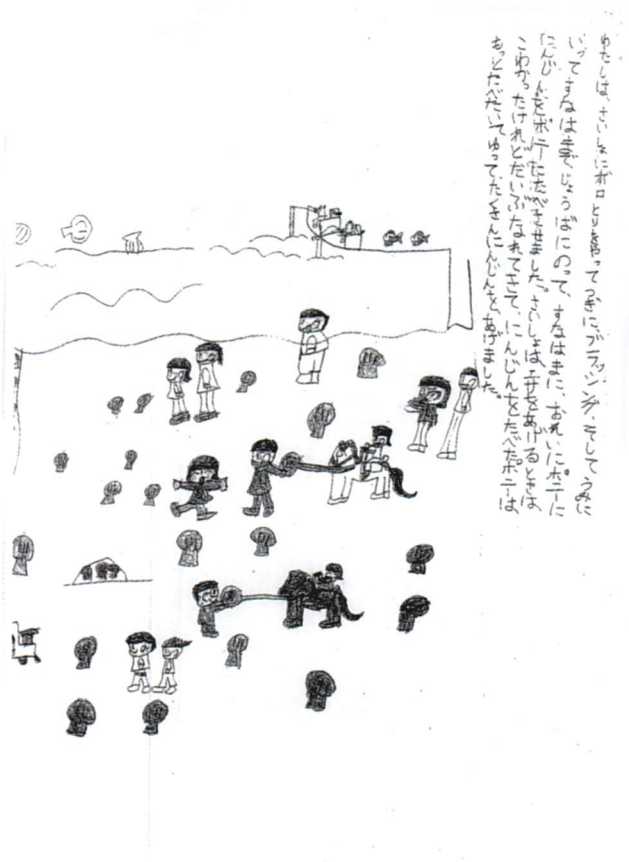 わたしは、さいしょにボロとりをやってつぎに、ブラッシング、そしてうみに
いってすなはまで、じょうばにのって、すなはまに、おれいにポニーに
にんじんをポニーにたべさせました。さいしょは、手をあげるときは、
こわかったけれどだいぶなれてきて、にんじんをたべたポニーは、
もっとたべたいてゆって、たくさんにんじんを、あげました。